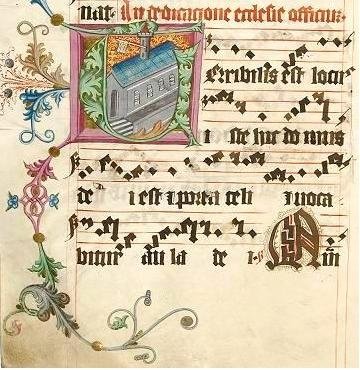 nat. In dedicacione ecclesie officiu.
Erribilis est locu
iste hic domus
de i est i porta celi i uoca
bitur au la de i.